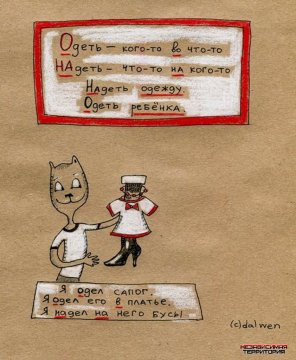 Одеть – кого-то во что-то
НАдеть – что-то на кого-то
Надеть одежду
Одеть ребёнка
Я одел сапог.
Я одел его в платье.
Я надел на него бусы
(c)dalwen
НЕЗАВИСИМАЯ
ТЕРРИТОРИЯ